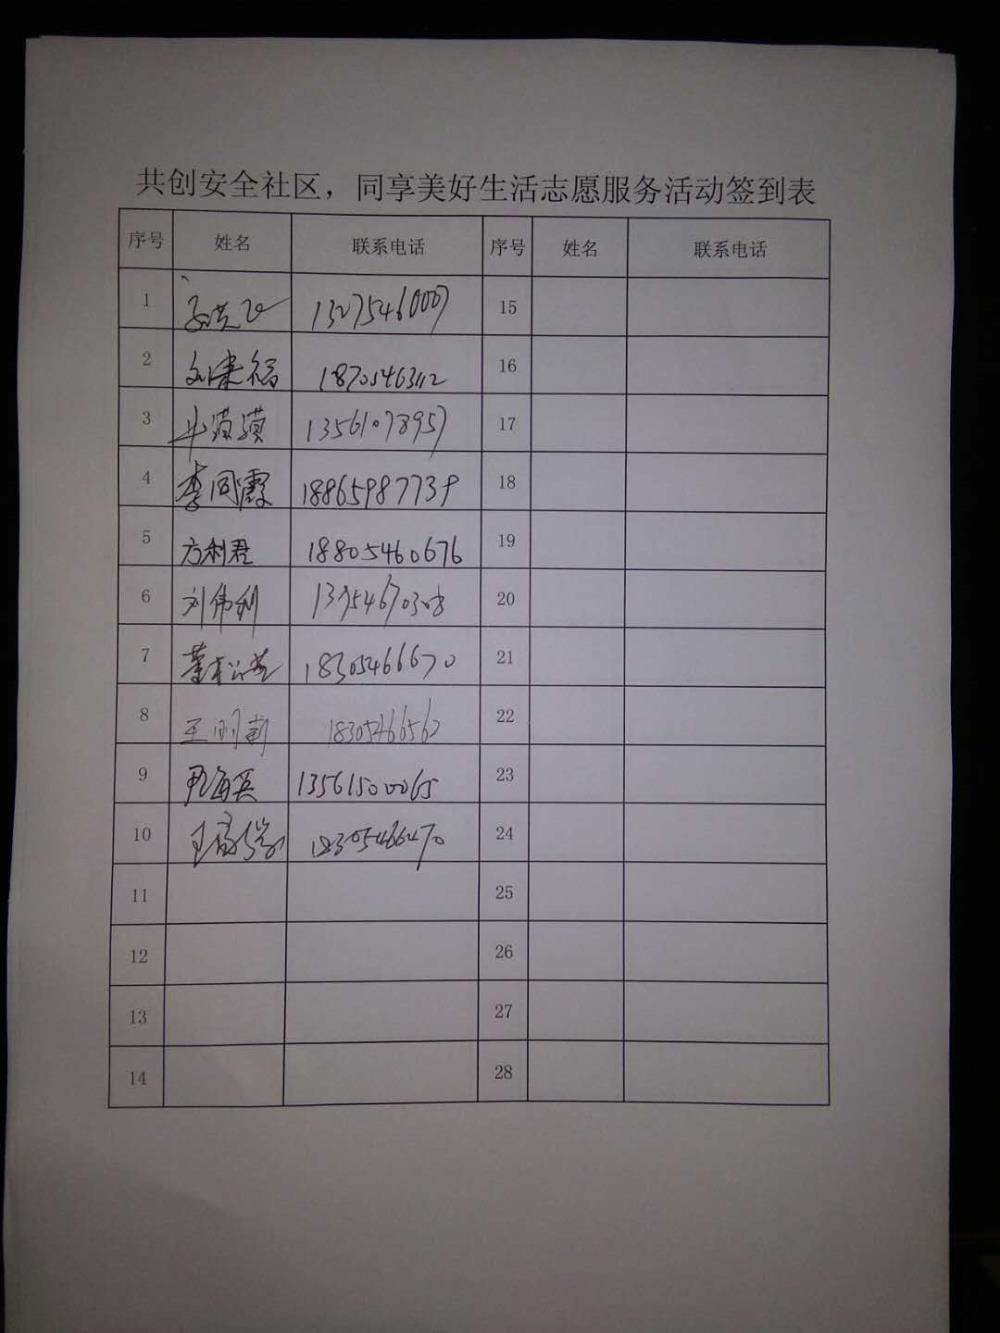 共创安全社区，同享美好生活志愿服务活动签到表
序号 姓名 联系电话 序号 姓名 联系电话
1 13275460007 15
2 18705463112 16
3 13561078957 17
4 李同霞 18865987739 18
5 方利君 18805460676 19
6 刘伟利 13954670308 20
7 18305466670 21
8 王刚 18305466562 22
9 海英 13561500065 23
10 王 18305466470 24
11 25
12 26
13 27
14 28